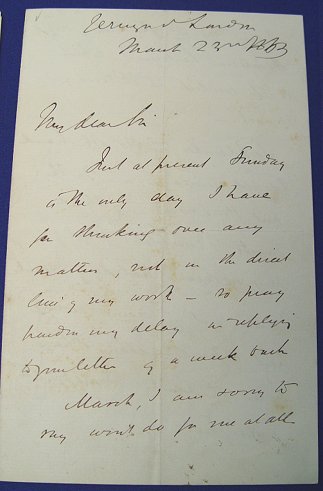 March 23rd 1863
My dear Sir
But at present Sunday
is the only day I have
for thinking over any
matters, not in the direct
line of my work - so pray
pardon my delay in replying
to your letter of a week back
March, I am sorry to
say wont do for me at all